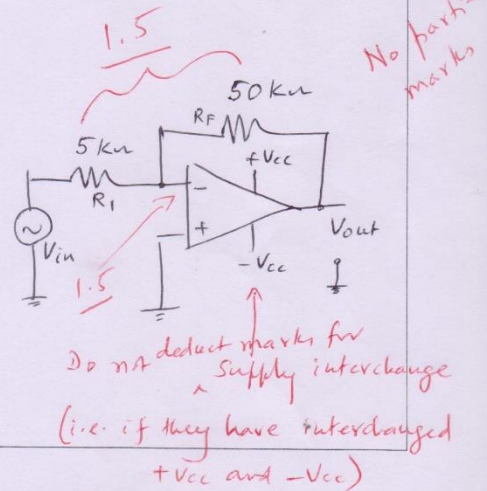 1.5
No parti
marks
50 KΩ
RF
5 KΩ
+Vcc
−
R1
+
Vout
Vin
−Vcc
1.5
Do not deduct marks for
supply interchange
(i.e. if they have interchanged
+Vcc and −Vcc)